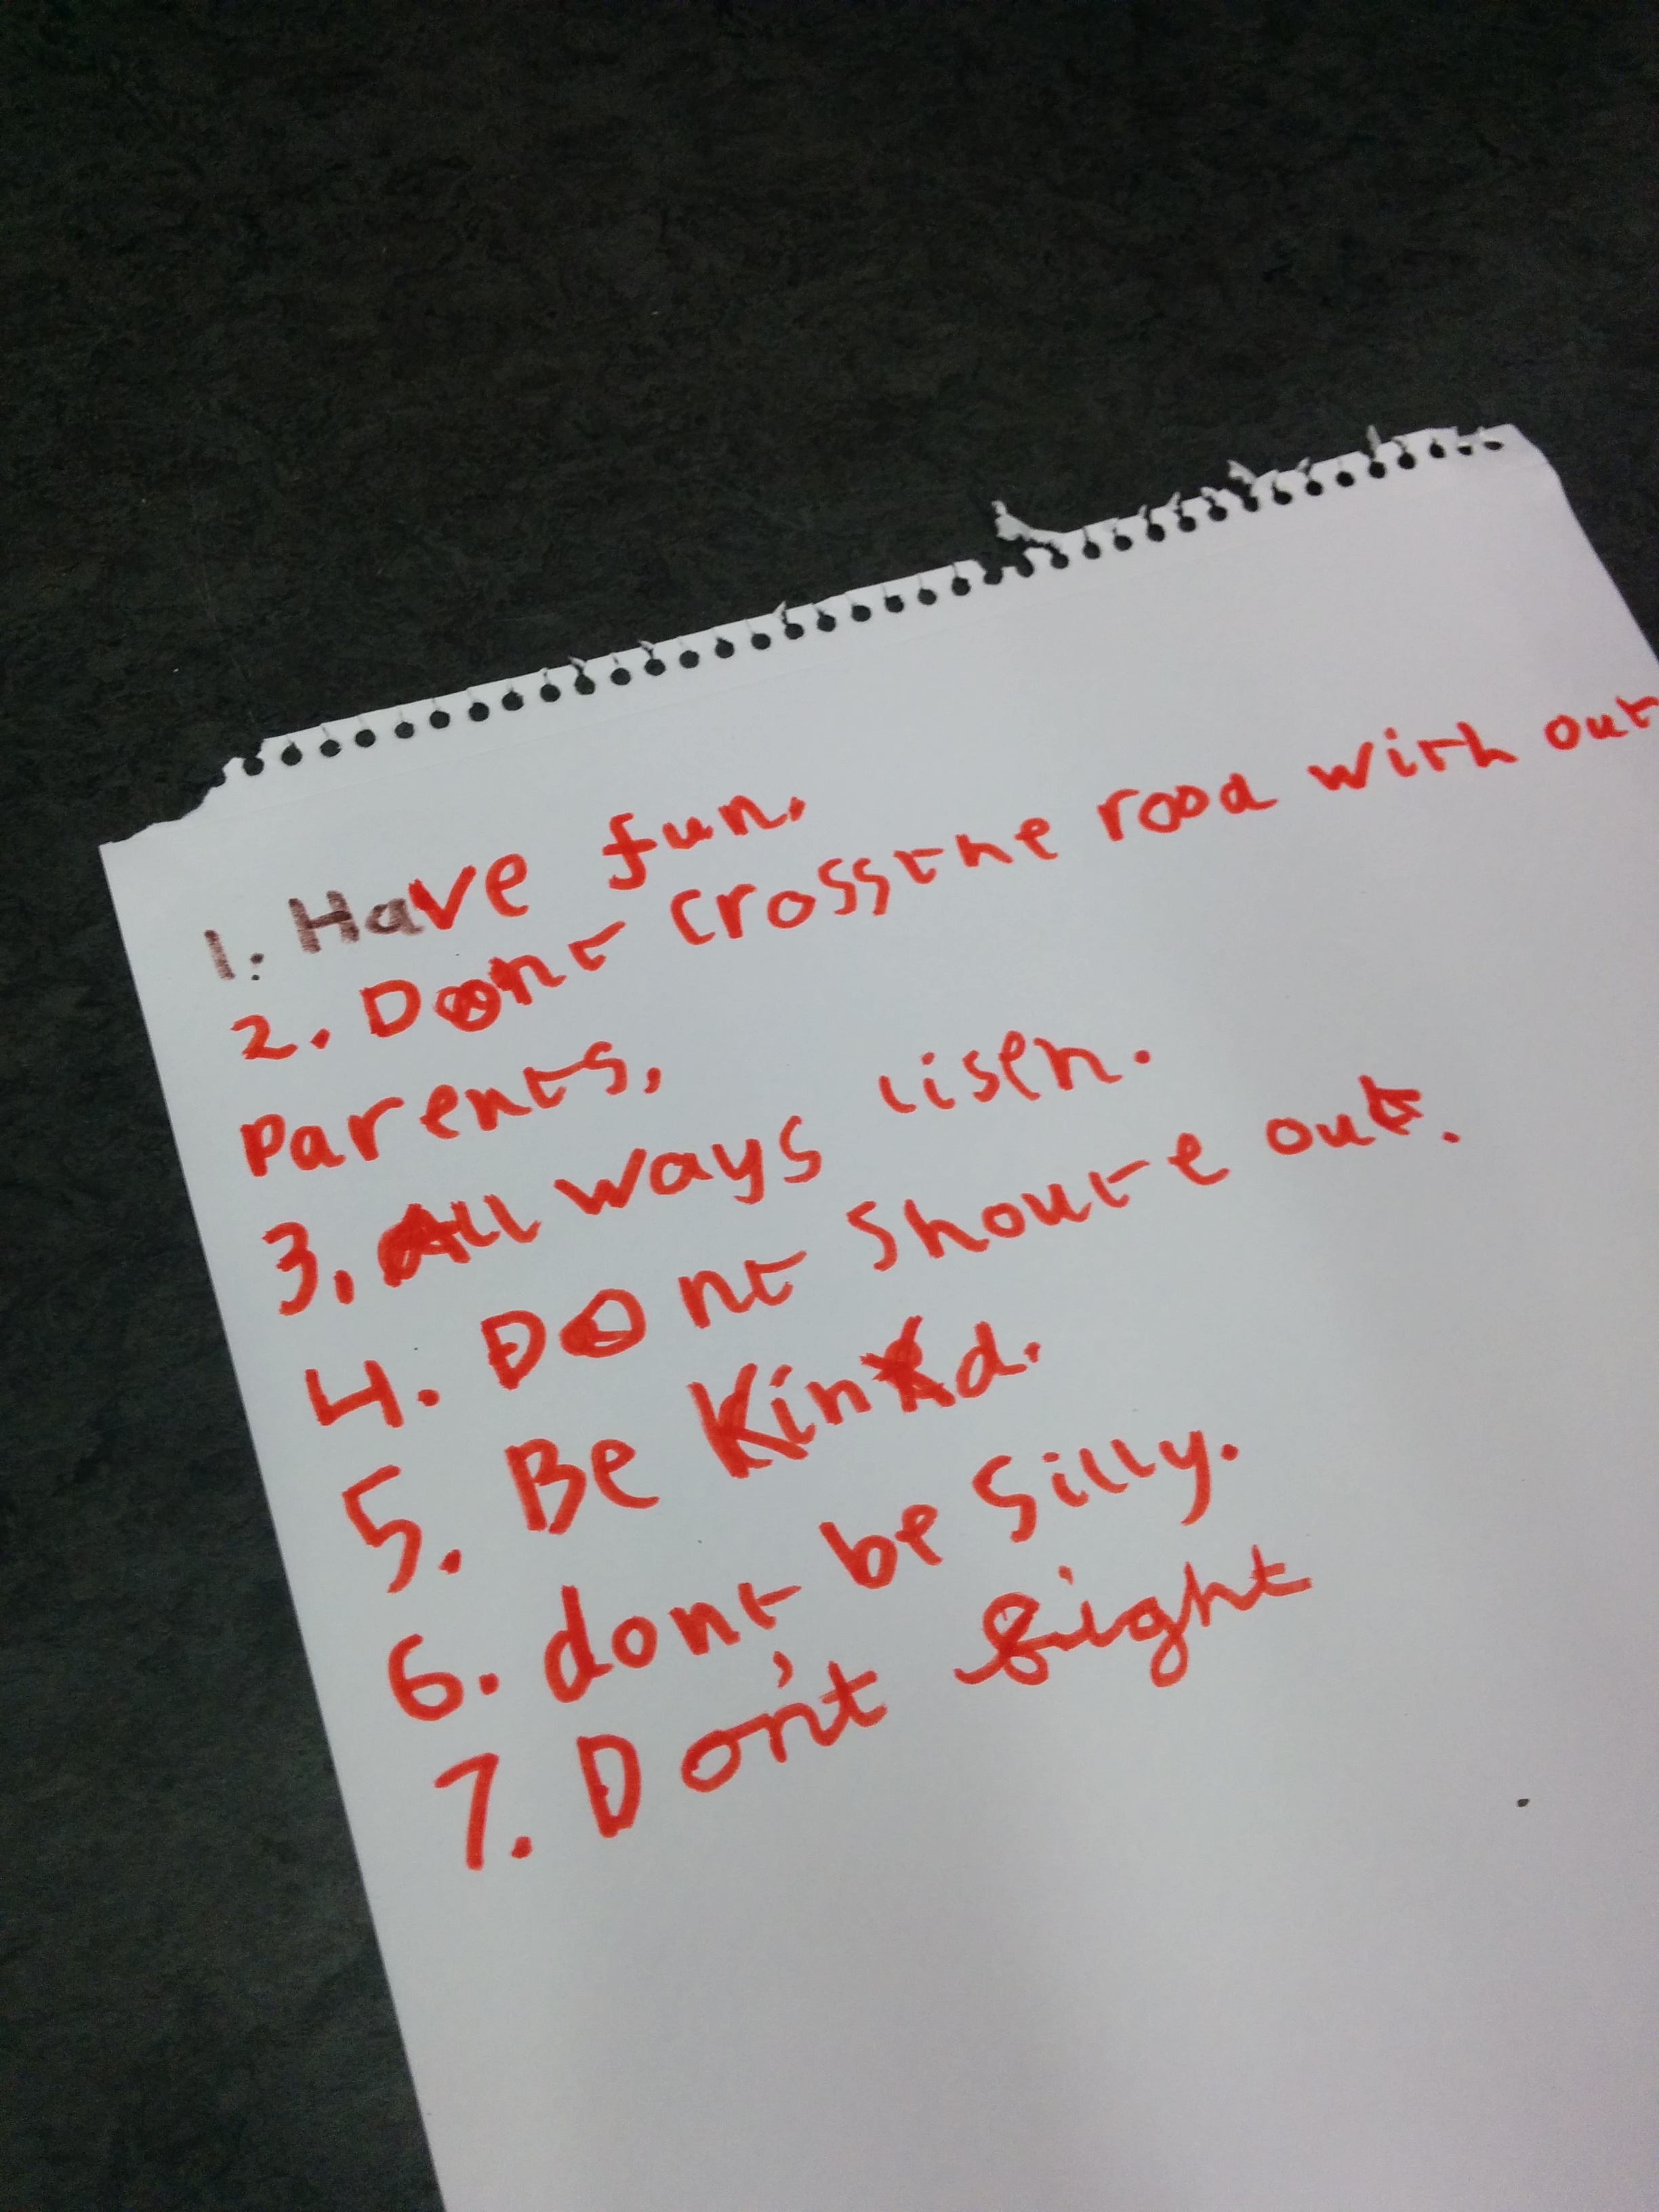 1. Have fun.
2. Dont Crossthe rood with out
Parents.
3. All ways lisen.
4. Dont Shoute out.
5. Be Kind.
6. dont be Silly.
7. Don't fight